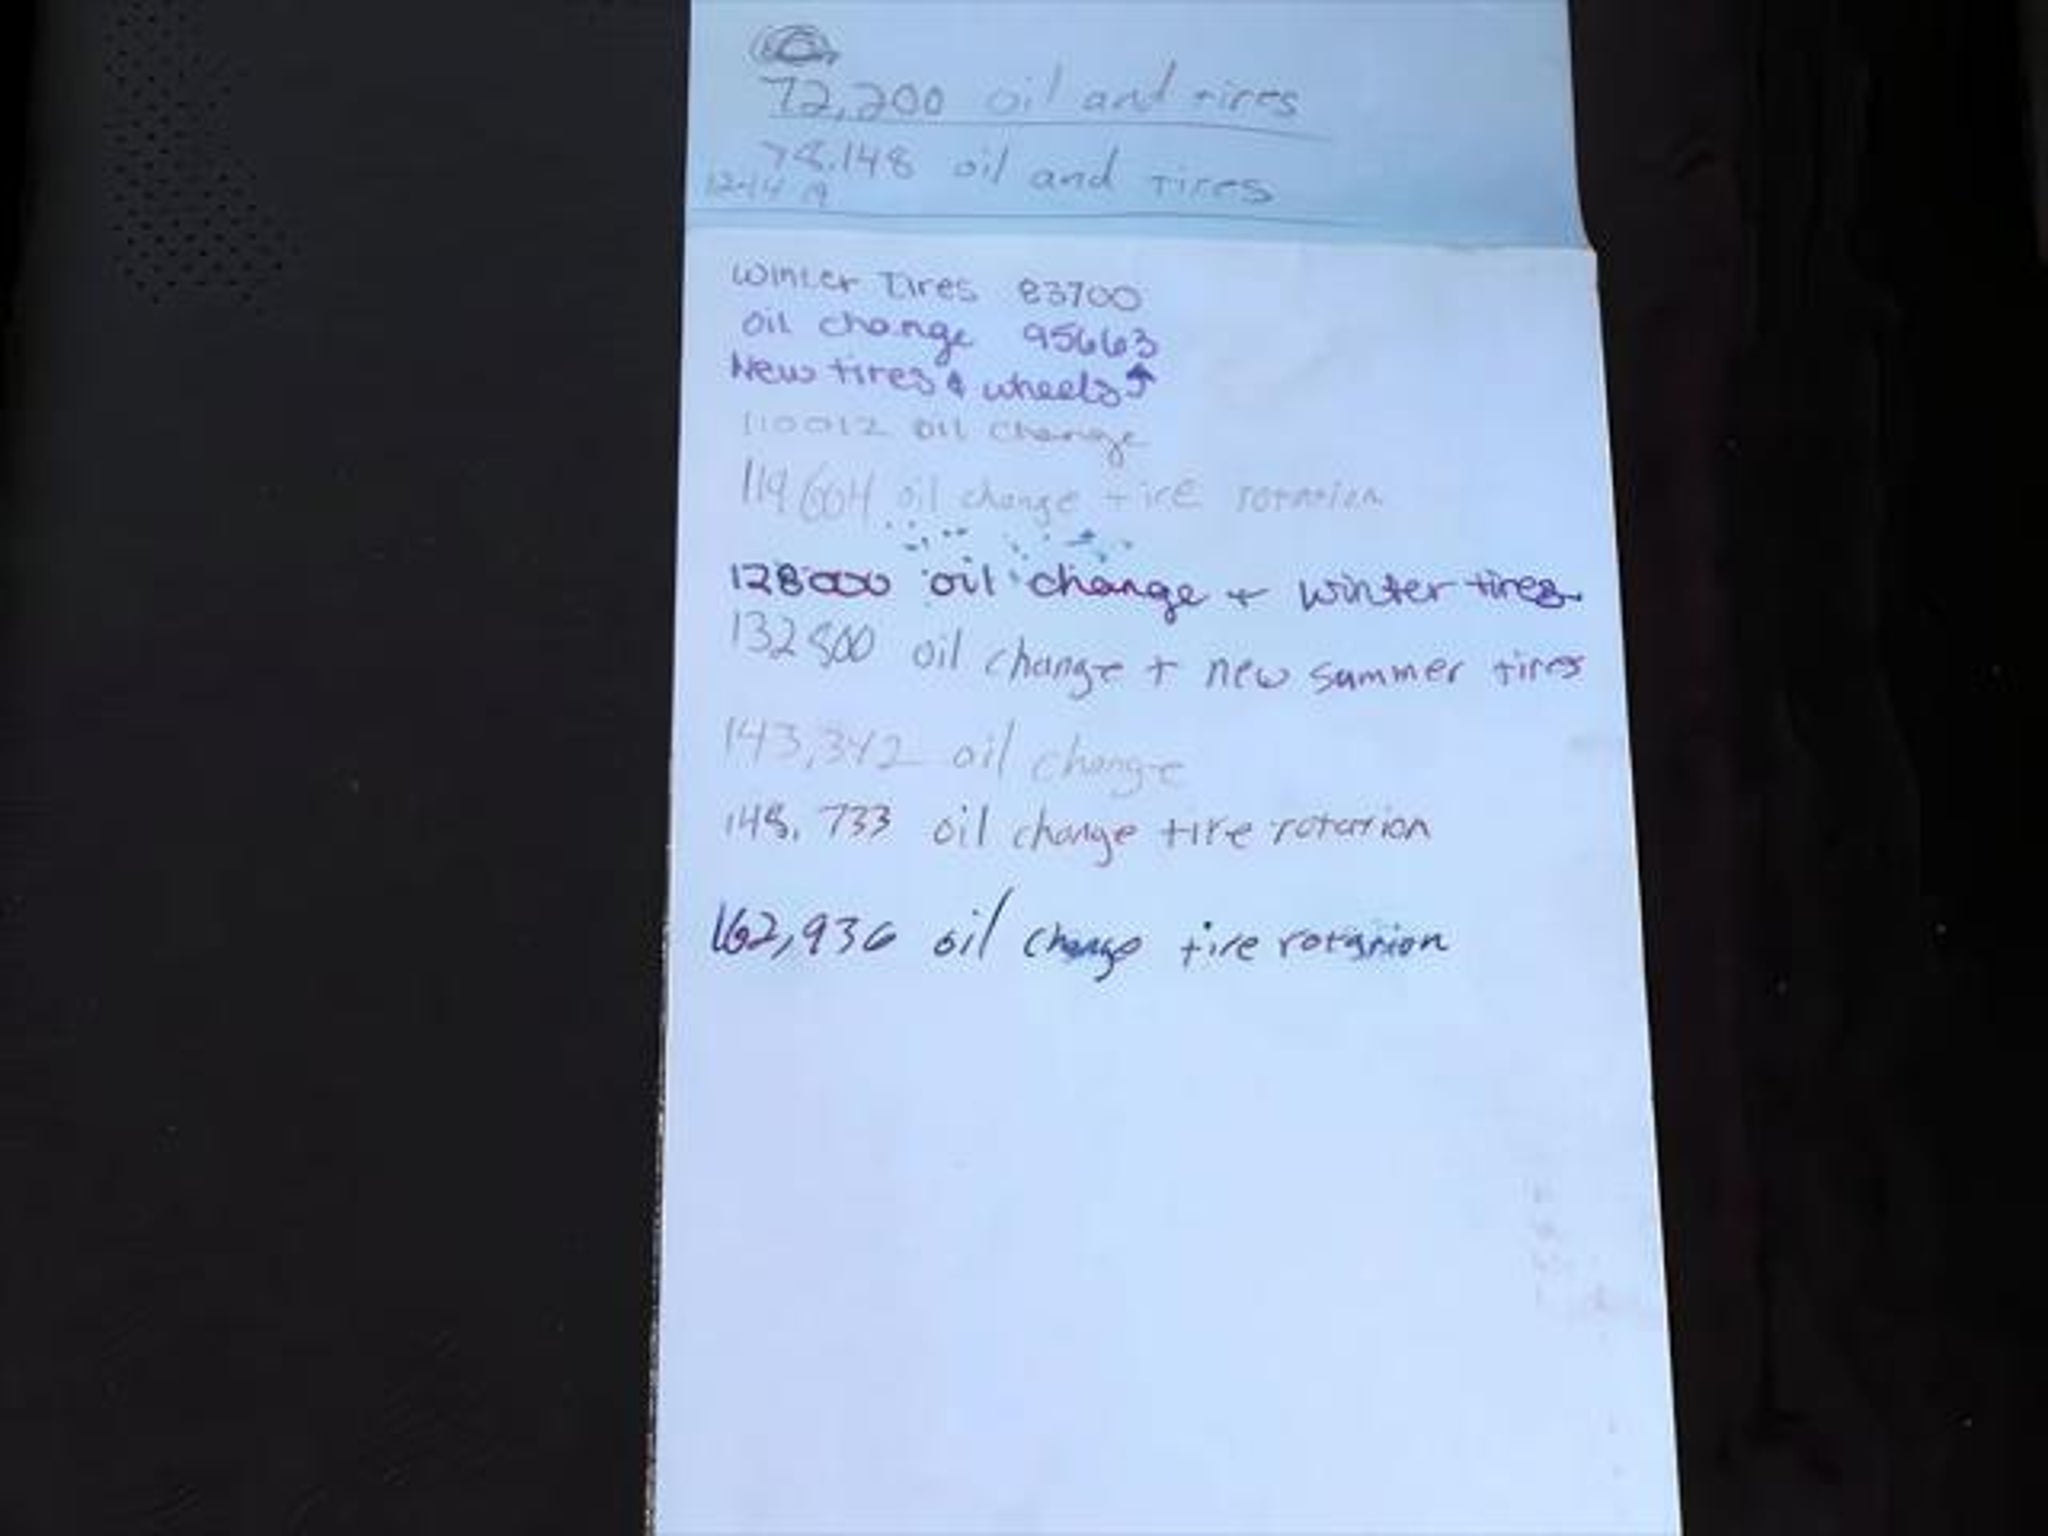 72,200 oil and tires
78.148 oil and tires
12-14 19
Winter Tires 83700
Oil change 95663
New tires & wheels ↑
110012 oil change
119604 oil change tire rotation
128000 oil change + winter tires
132500 oil change + new summer tires
143,342 oil change
148,733 oil change tire rotation
162,936 oil change tire rotation